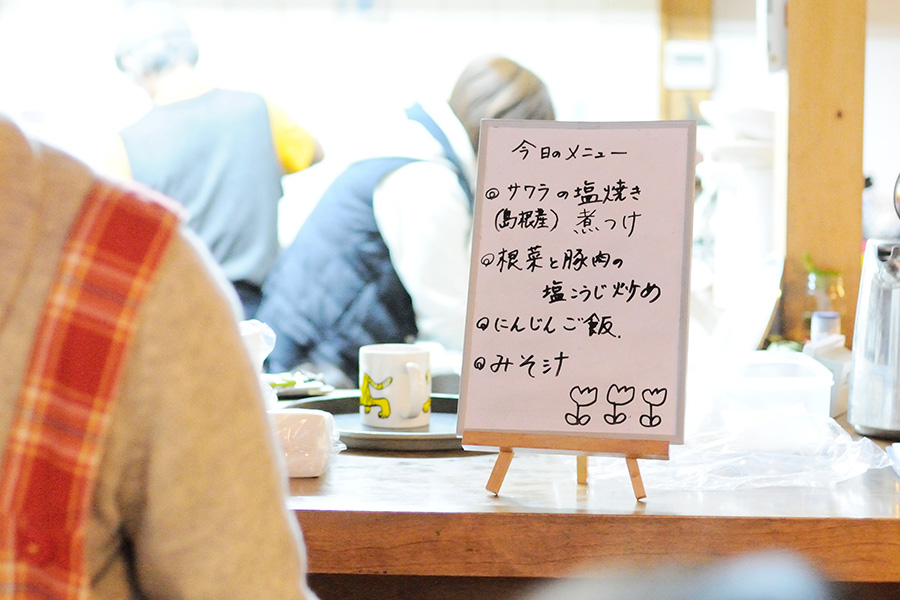 今日のメニュー
◎サワラの塩焼き
(島根産) 煮つけ
◎根菜と豚肉の
塩こうじ炒め
◎にんじんご飯.
◎みそ汁